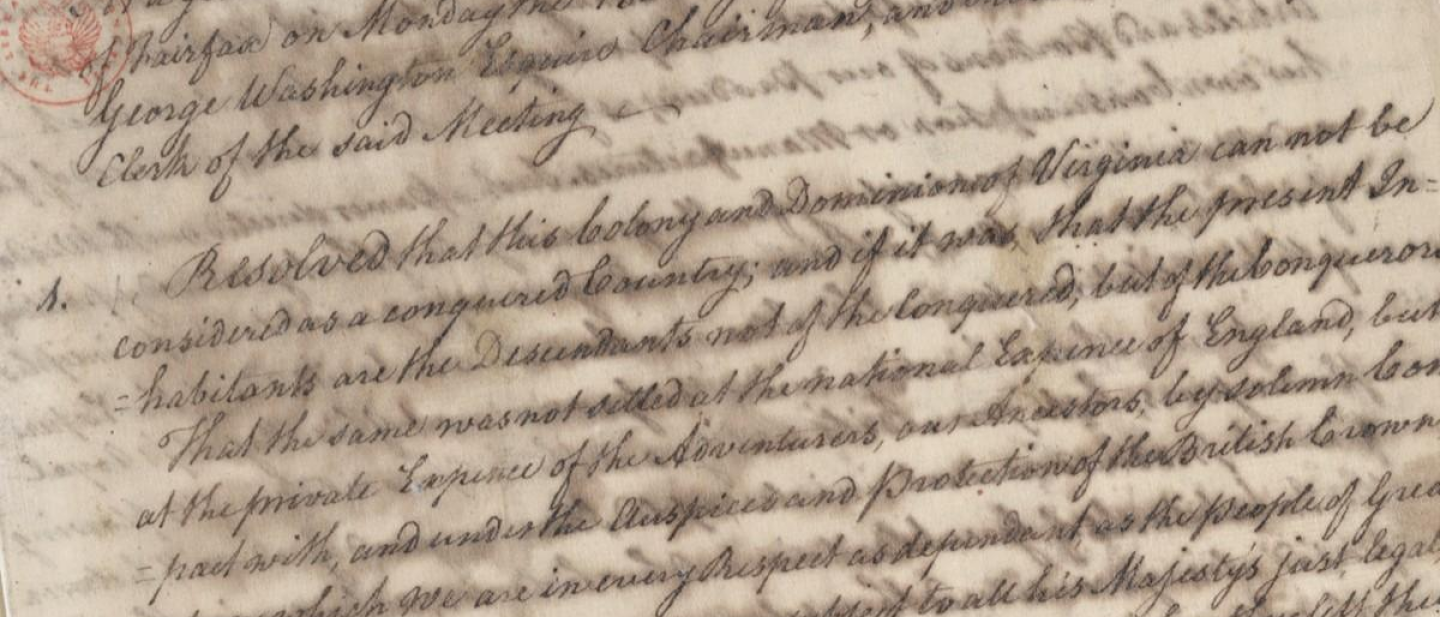 of Fairfax on Monday the
George Washington Esquire Chairman, and
Clerk of the said Meeting
1. Resolved that this Colony and Dominion of Virginia can not be
considered as a conquered Country; and if it was, that the present In=
=habitants are the Descendants not of the Conquered, but of the Conquerors
That the same was not setled at the national Expence of England, but
at the private Expence of the Adventurers, our Ancestors, by solemn Com
=pact with, and under the Auspices and Protection of the British Crown
which we are in every Respect as dependant, as the People of Grea
subject to all his Majesty's just legal